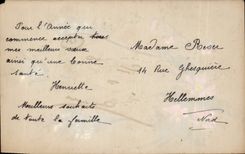 Pour l'Année qui
commence acceptez tous
mes meilleurs vœux
ainsi qu'une bonne
santé
Henriette
Meilleurs souhaits
de toute la famille
Madame Roser
14 Rue Ghesquière
Hellemmes
Nord